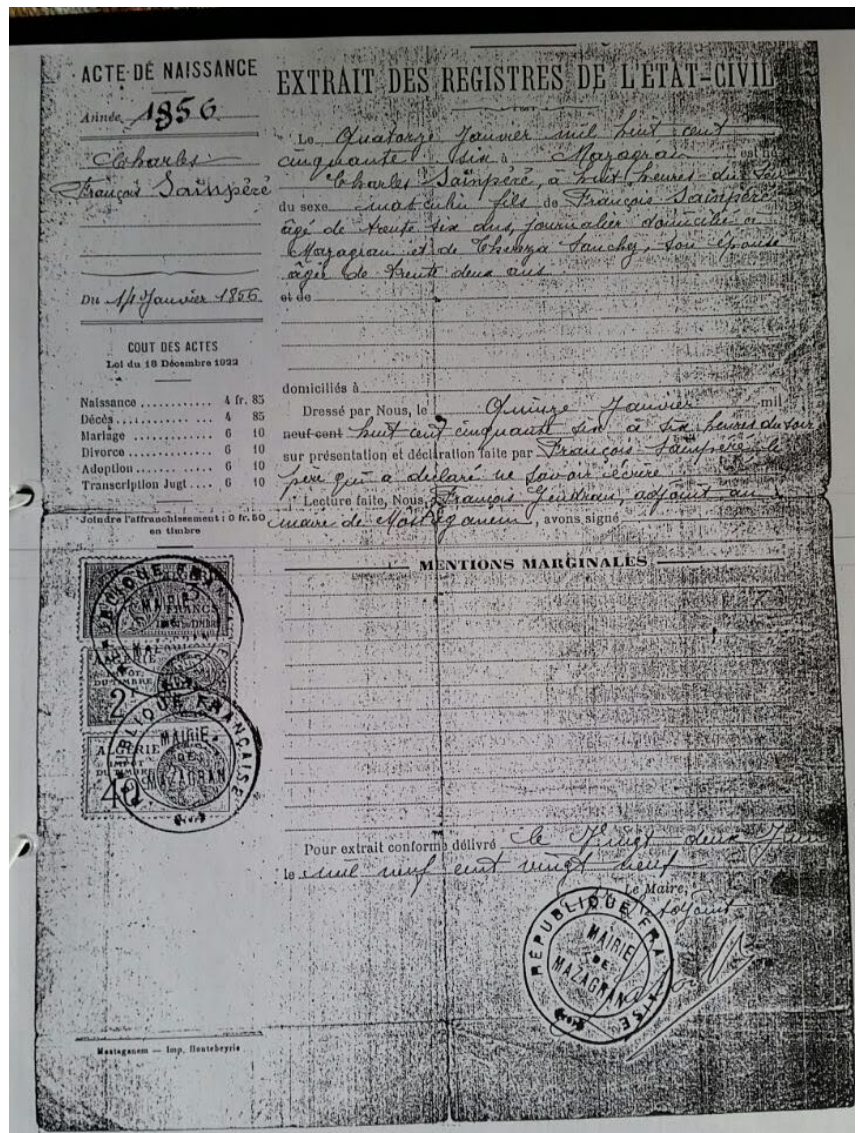 ACTE DE NAISSANCE
Année 1856
Charles
François Sainpéré
Du 14 Janvier 1856
COUT DES ACTES
Loi du 18 Décembre 1922
Naissance ............ 4 fr. 85
Décès ............ 4 85
Mariage ............ 6 10
Divorce ............ 6 10
Adoption ............ 6 10
Transcription Jugt .... 6 10
Joindre l'affranchissement : 0 fr. 50
en timbre
EXTRAIT DES REGISTRES DE L'ÉTAT-CIVIL
Le Quatorze Janvier mil huit cent
cinquante six à Mazagran est né
Charles Sainpéré, à huit heures du soir
du sexe masculin fils de François Sainpéré
âgé de trente six ans, journalier domicilié à
Mazagran et de Thereza Sanchez, son épouse
âgée de trente deux ans
et de
domiciliés à
Dressé par Nous, le Quinze Janvier mil
neuf cent huit cent cinquante six à six heures du soir
sur présentation et déclaration faite par François Sainpéré le
père qui a déclaré ne savoir écrire
Lecture faite, Nous, François Gendran, adjoint au
maire de Mostaganem, avons signé
MENTIONS MARGINALES
ALGERIE
IMPÔT
DU TIMBRE
2
ALGERIE
IMPÔT
DU TIMBRE
40
RÉPUBLIQUE FRANÇAISE
MAIRIE
DE
MAZAGRAN
Pour extrait conforme délivré le Vingt deux Juin
le mil neuf cent vingt neuf
Le Maire,
adjoint
RÉPUBLIQUE FRANÇAISE
MAIRIE
DE
MAZAGRAN
Mostaganem — Imp. Bontebeyrie